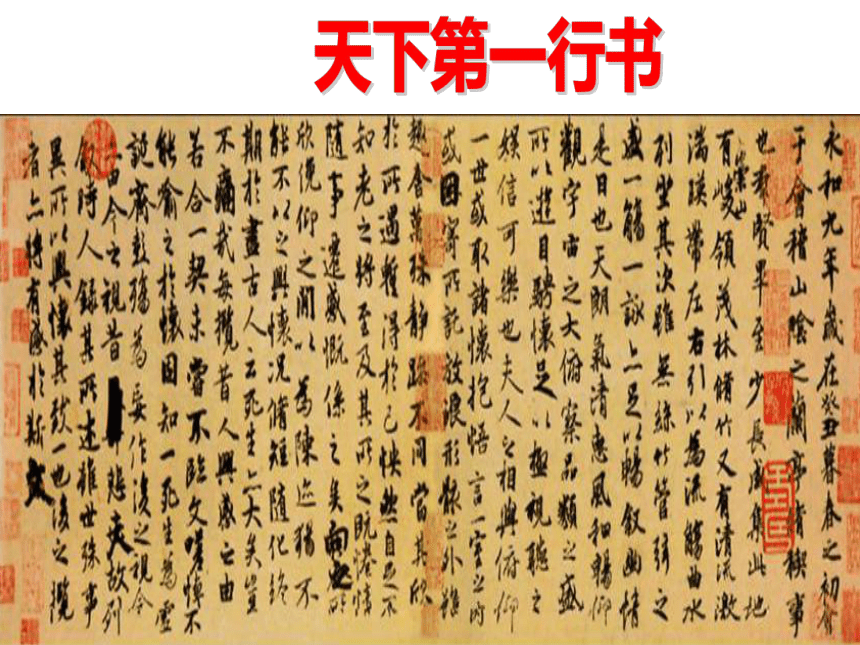 天下第一行书
永和九年歲在癸丑暮春之初會
于會稽山陰之蘭亭脩禊事
也群賢畢至少長咸集此地
有崇山峻領茂林脩竹又有清流激
湍暎帶左右引以為流觴曲水
列坐其次雖無絲竹管弦之
盛一觴一詠亦足以暢敘幽情
是日也天朗氣清惠風和暢仰
觀宇宙之大俯察品類之盛
所以遊目騁懷足以極視聽之
娛信可樂也夫人之相與俯仰
一世或取諸懷抱悟言一室之內
或因寄所託放浪形骸之外雖
趣舍萬殊靜躁不同當其欣
於所遇蹔得於己怏然自足不
知老之將至及其所之既惓情
隨事遷感慨係之矣向之所
欣俛仰之間以為陳迹猶不
能不以之興懷況脩短隨化終
期於盡古人云死生亦大矣豈
不痛哉每攬昔人興感之由
若合一契未嘗不臨文嗟悼不
能喻之於懷固知一死生為虛
誕齊彭殤為妄作後之視今
亦由今之視昔悲夫故列
敘時人錄其所述雖世殊事
異所以興懷其致一也後之攬
者亦將有感於斯文